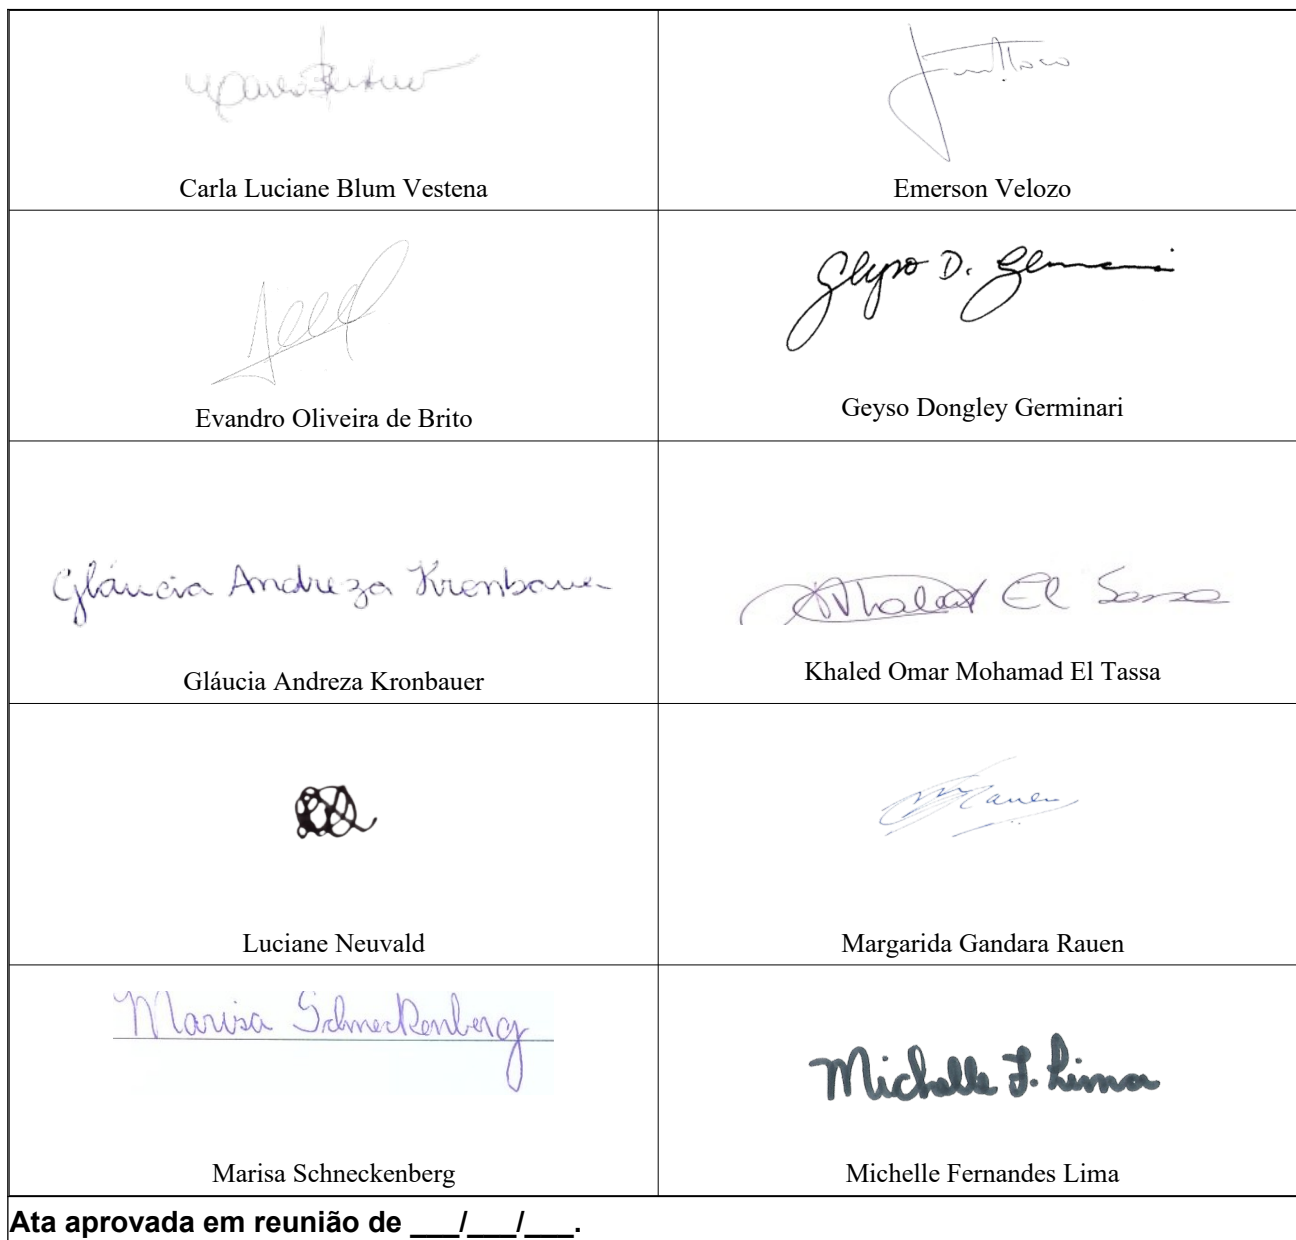 Carla Luciane Blum Vestena
Emerson Velozo
Evandro Oliveira de Brito
Geyso D.
Geyso Dongley Germinari
Gláucia Andreza Kronbauer
Gláucia Andreza Kronbauer
Khaled El
Khaled Omar Mohamad El Tassa
Luciane Neuvald
Rauen
Margarida Gandara Rauen
Marisa Schneckenberg
Marisa Schneckenberg
Michelle F. Lima
Michelle Fernandes Lima
Ata aprovada em reunião de ___/___/___.